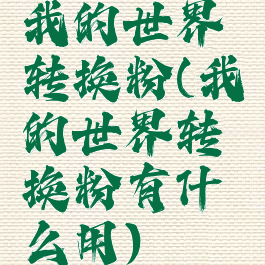 我的世界
转换粉(我
的世界转
换粉有什
么用)